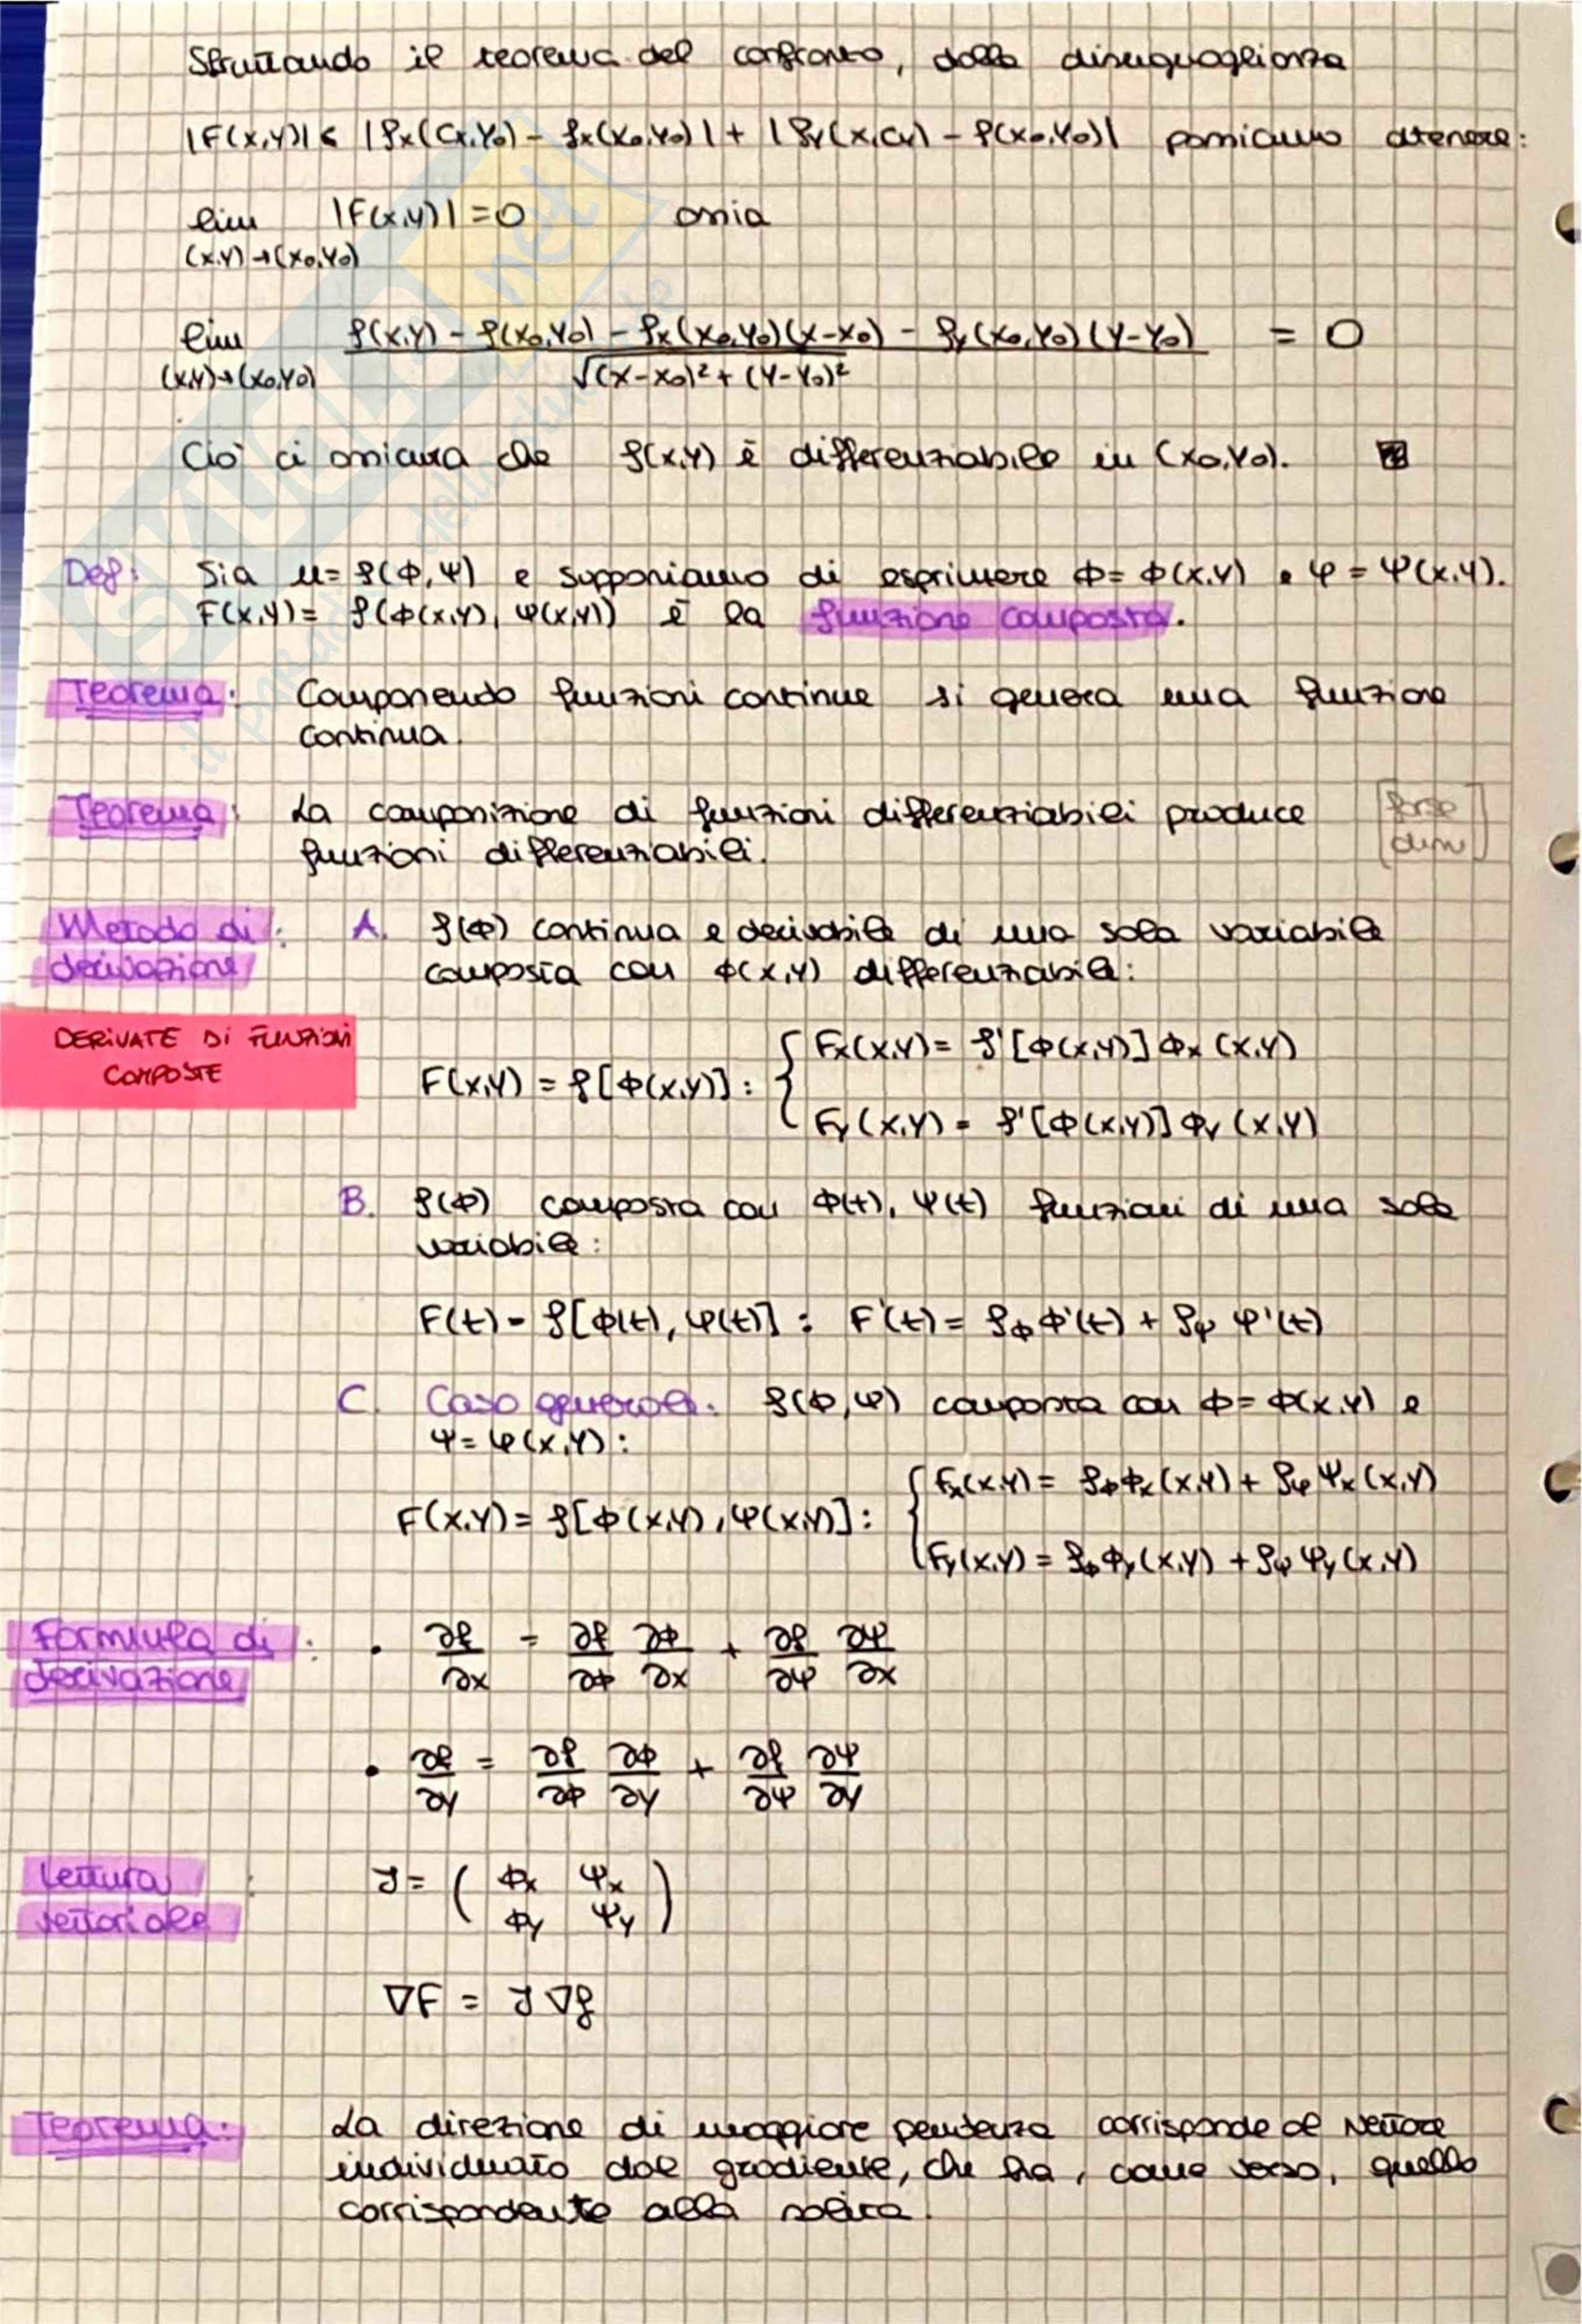 Sfruttando il teorema del confronto, dalla disuguaglianza
|F(x,y)| ≤ |fx(cx,y0) - fx(x0,y0)| + |fy(x,cy) - f(x0,y0)| possiamo ottenere:
lim |F(x,y)| = 0 ossia
(x,y)→(x0,y0)
lim f(x,y) - f(x0,y0) - fx(x0,y0)(x-x0) - fy(x0,y0)(y-y0) = 0
(x,y)→(x0,y0) √(x-x0)² + (y-y0)²
Ciò ci assicura che f(x,y) è differenziabile in (x0,y0).
Def: Sia u = f(Φ,Ψ) e supponiamo di esprimere Φ = Φ(x,y) e Ψ = Ψ(x,y).
F(x,y) = f(Φ(x,y), Ψ(x,y)) è la funzione composta.
Teorema: Componendo funzioni continue si genera una funzione
continua.
Teorema: La composizione di funzioni differenziabili produce [forse
funzioni differenziabili. dim]
Metodo di : A. f(Φ) continua e derivabile di una sola variabile
derivazione composta con Φ(x,y) differenziabile:
DERIVATE DI FUNZIONI
COMPOSTE
Fx(x,y) = f'[Φ(x,y)] Φx (x,y)
F(x,y) = f[Φ(x,y)] : {
Fy(x,y) = f'[Φ(x,y)] Φy (x,y)
B. f(Φ) composta con Φ(t), Ψ(t) funzioni di una sola
variabile:
F(t) = f[Φ(t), Ψ(t)] : F'(t) = fΦ Φ'(t) + fΨ Ψ'(t)
C. Caso generale: f(Φ,Ψ) composta con Φ = Φ(x,y) e
Ψ = Ψ(x,y):
Fx(x,y) = fΦ Φx(x,y) + fΨ Ψx(x,y)
F(x,y) = f[Φ(x,y), Ψ(x,y)] : {
Fy(x,y) = fΦ Φy(x,y) + fΨ Ψy(x,y)
Formula di : • ∂f/∂x = ∂f/∂Φ ∂Φ/∂x + ∂f/∂Ψ ∂Ψ/∂x
derivazione
• ∂f/∂y = ∂f/∂Φ ∂Φ/∂y + ∂f/∂Ψ ∂Ψ/∂y
Lettura : J = ( Φx Ψx
vettoriale Φy Ψy )
∇F = J ∇f
Teorema: La direzione di maggiore pendenza corrisponde al vettore
individuato dal gradiente, che ha, come verso, quello
corrispondente alla salita.